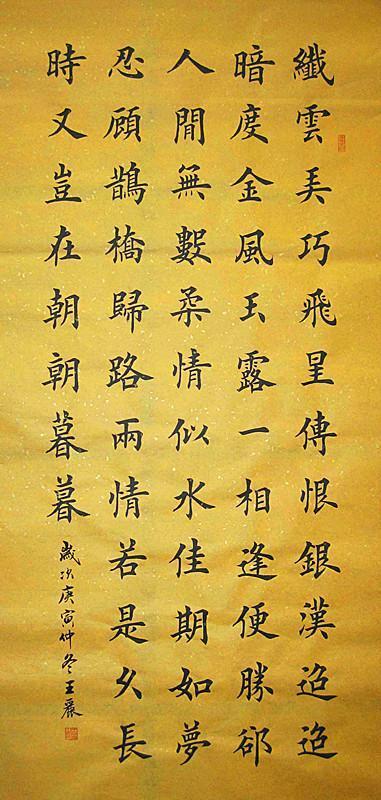 纖雲弄巧飛星傳恨銀漢迢迢
暗度金風玉露一相逢便勝卻
人間無數柔情似水佳期如夢
忍顧鵲橋歸路兩情若是久長
時又豈在朝朝暮暮
歲次庚寅仲冬王